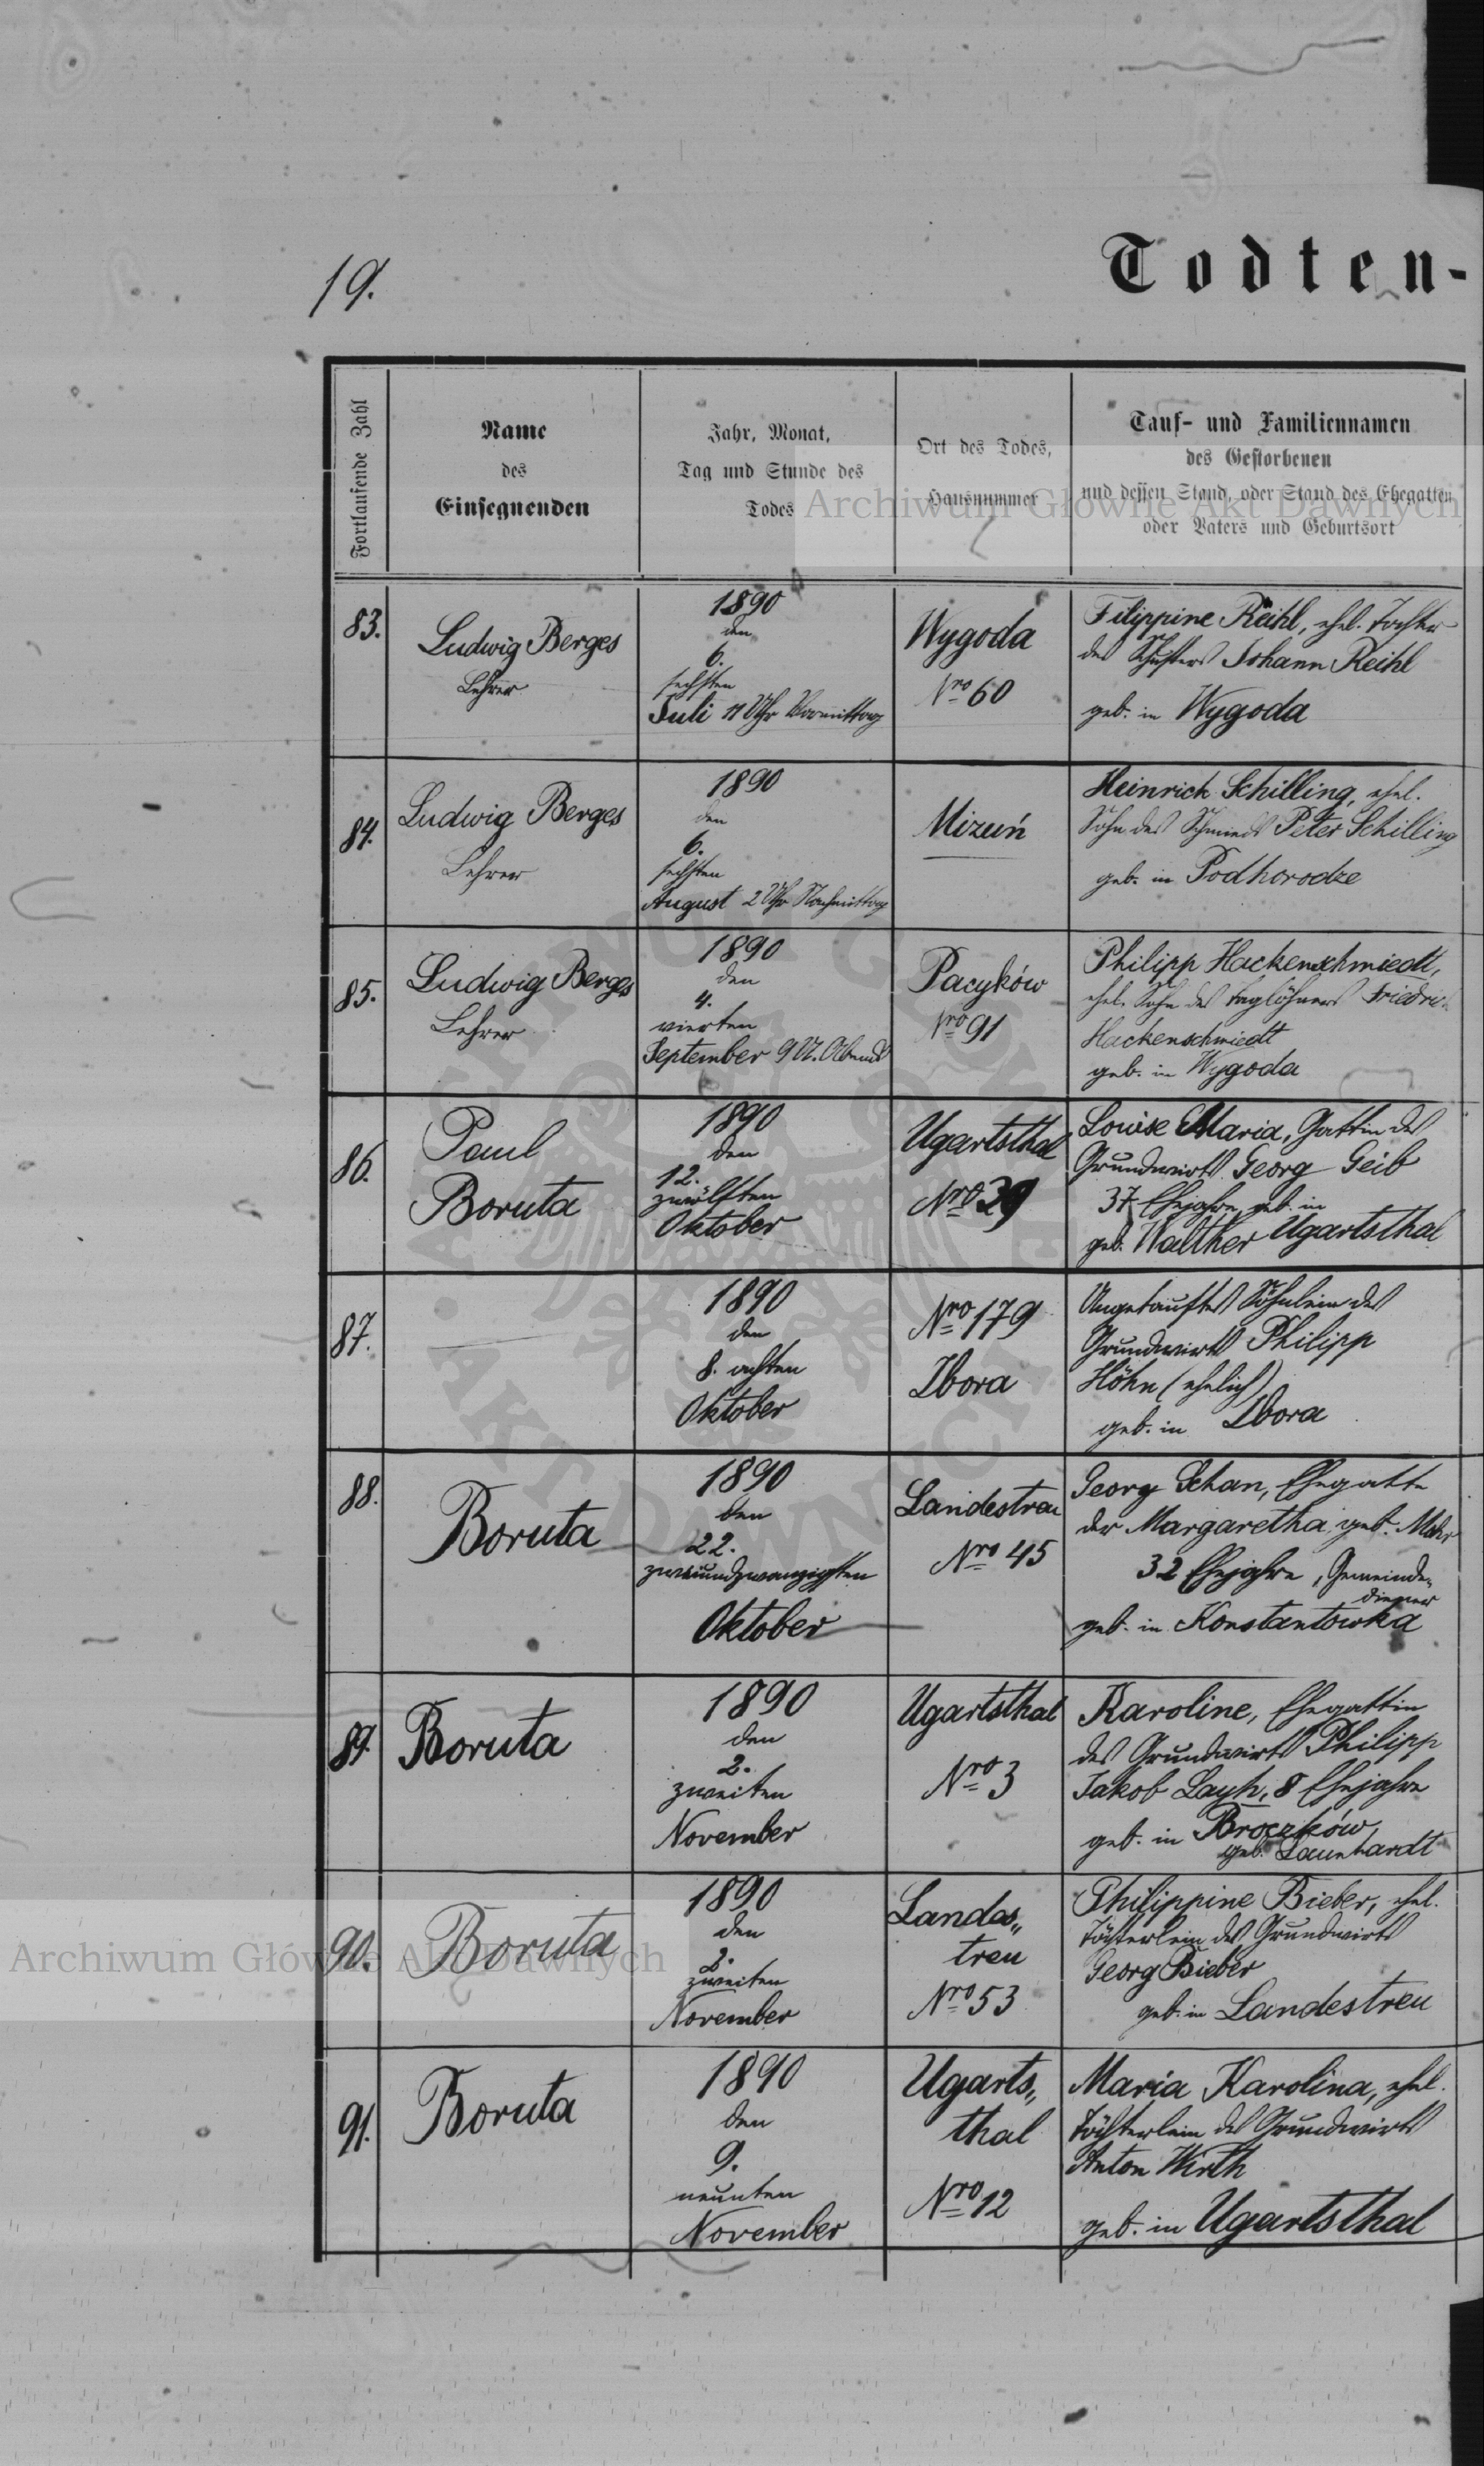 19.
Todten-
Fortlaufende Zahl
Name
des
Einsegnenden
Jahr, Monat,
Tag und Stunde des
Todes
Ort des Todes,
Hausnummer
Tauf- und Familiennamen
des Gestorbenen
und dessen Stand, oder Stand des Ehegatten
oder Vaters und Geburtsort
Archiwum Główne Akt Dawnych
83.
Ludwig Berges
Lehrer
1890
den
6.
sechsten
Juli 11 Uhr Vormittag
Wygoda
Nro 60
Filippine Reihl, ehel. Tochter
des Schusters Johann Reihl
geb. in Wygoda
84.
Ludwig Berges
Lehrer
1890
den
6.
sechsten
August 2 Uhr Nachmittag
Mizuń
Heinrich Schilling, ehel.
Sohn des Schmieds Peter Schilling
geb. in Podhorodze
85.
Ludwig Berges
Lehrer
1890
den
4.
vierten
September 9 U. Abends
Pacyków
Nro 91
Philipp Hackenschmiedt,
ehel. Sohn des Taglöhners
Hackenschmiedt
geb. in Wygoda
86.
Paul
Boruta
1890
den
12.
zwölften
Oktober
Ugartsthal
Nro 39
Louise Maria, Gattin des
Grundwirts Georg Geib
37 Ehejahre, geb. in
geb. Walther Ugartsthal
87.
1890
den
8. achten
Oktober
Nro 179
Zbora
Ungetauftes Söhnlein des
Grundwirts Philipp
Höhn (ehelich)
geb. in Zbora
88.
Boruta
1890
den
22.
zweiundzwanzigsten
Oktober
Landestreu
Nro 45
Georg Schan, Ehegatte
der Margaretha, geb.
32 Ehejahre, Gemeinde-
diener
geb. in Konstantowka
89.
Boruta
1890
den
2.
zweiten
November
Ugartsthal
Nro 3
Karoline, Ehegattin
des Grundwirts Philipp
Jakob Layh, 8 Ehejahre
geb. in Broczków
geb. Launhardt
90.
Boruta
1890
den
2.
zweiten
November
Landes„
treu
Nro 53
Philippine Bieber, ehel.
Töchterlein des Grundwirts
Georg Bieber
geb. in Landestreu
Archiwum Główne Akt Dawnych
91.
Boruta
1890
den
9.
neunten
November
Ugarts„
thal
Nro 12
Maria Karolina, ehel.
Töchterlein des Grundwirts
Anton Wirth
geb. in Ugartsthal